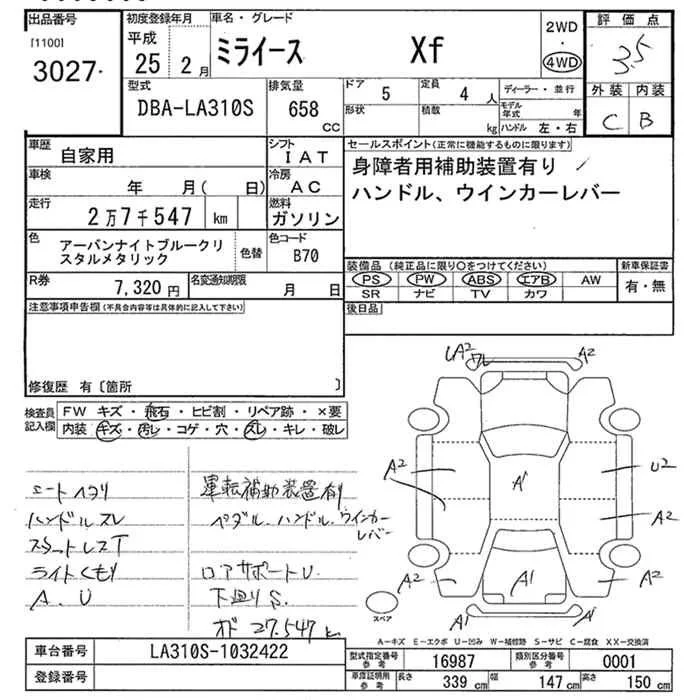 出品番号
[1100]
3027
初度登録年月
平成
25 2月
車名・グレード
ミライース Xf
2WD
・
4WD
評価点
3.5
外装 内装
C B
型式
DBA-LA310S
排気量
658
CC
ドア 5
形状
定員 4 人
積載 kg
ディーラー・並行
モデル年式 年
ハンドル 左・右
車歴
自家用
シフト
IAT
車検
年 月( 日)
冷房
AC
走行
2万7千547 km
燃料
ガソリン
色
アーバンナイトブルークリ
スタルメタリック
色替
色コード
B70
R券
7,320 円
名変通知期限
月 日
セールスポイント(正常に機能するものに限ります)
身障者用補助装置有り
ハンドル、ウインカーレバー
装備品 (純正品に限り○をつけてください)
PS PW ABS エアB AW
SR ナビ TV カワ
新車保証書
有・無
後日品
注意事項申告欄(不具合内容等は具体的に記入して下さい)
修復歴 有〔箇所 〕
検査員
記入欄
FW キズ・飛石・ヒビ割・リペア跡・×要
内装 キズ・汚レ・コゲ・穴・スレ・キレ・破レ
シートヘタリ
ハンドルスレ
スタットレスT
ライトくもり
A、U
運転補助装置有
ペダル、ハンドル、ウインカー
レバー
ロアサポートU.
下廻りS.
オド 27.547k
A2
A2
A2
A1
U2
A2
A2
A1
A2
A1
A1
スペア
A-キズ E-エクボ U-凹み W-補修跡 S-サビ C-腐食 XX-交換済
車台番号
LA310S-1032422
登録番号
型式指定番号
参考
16987
類別区分番号
参考
0001
車庫証明用
参考
長さ 339 cm
幅 147 cm
高さ 150 cm